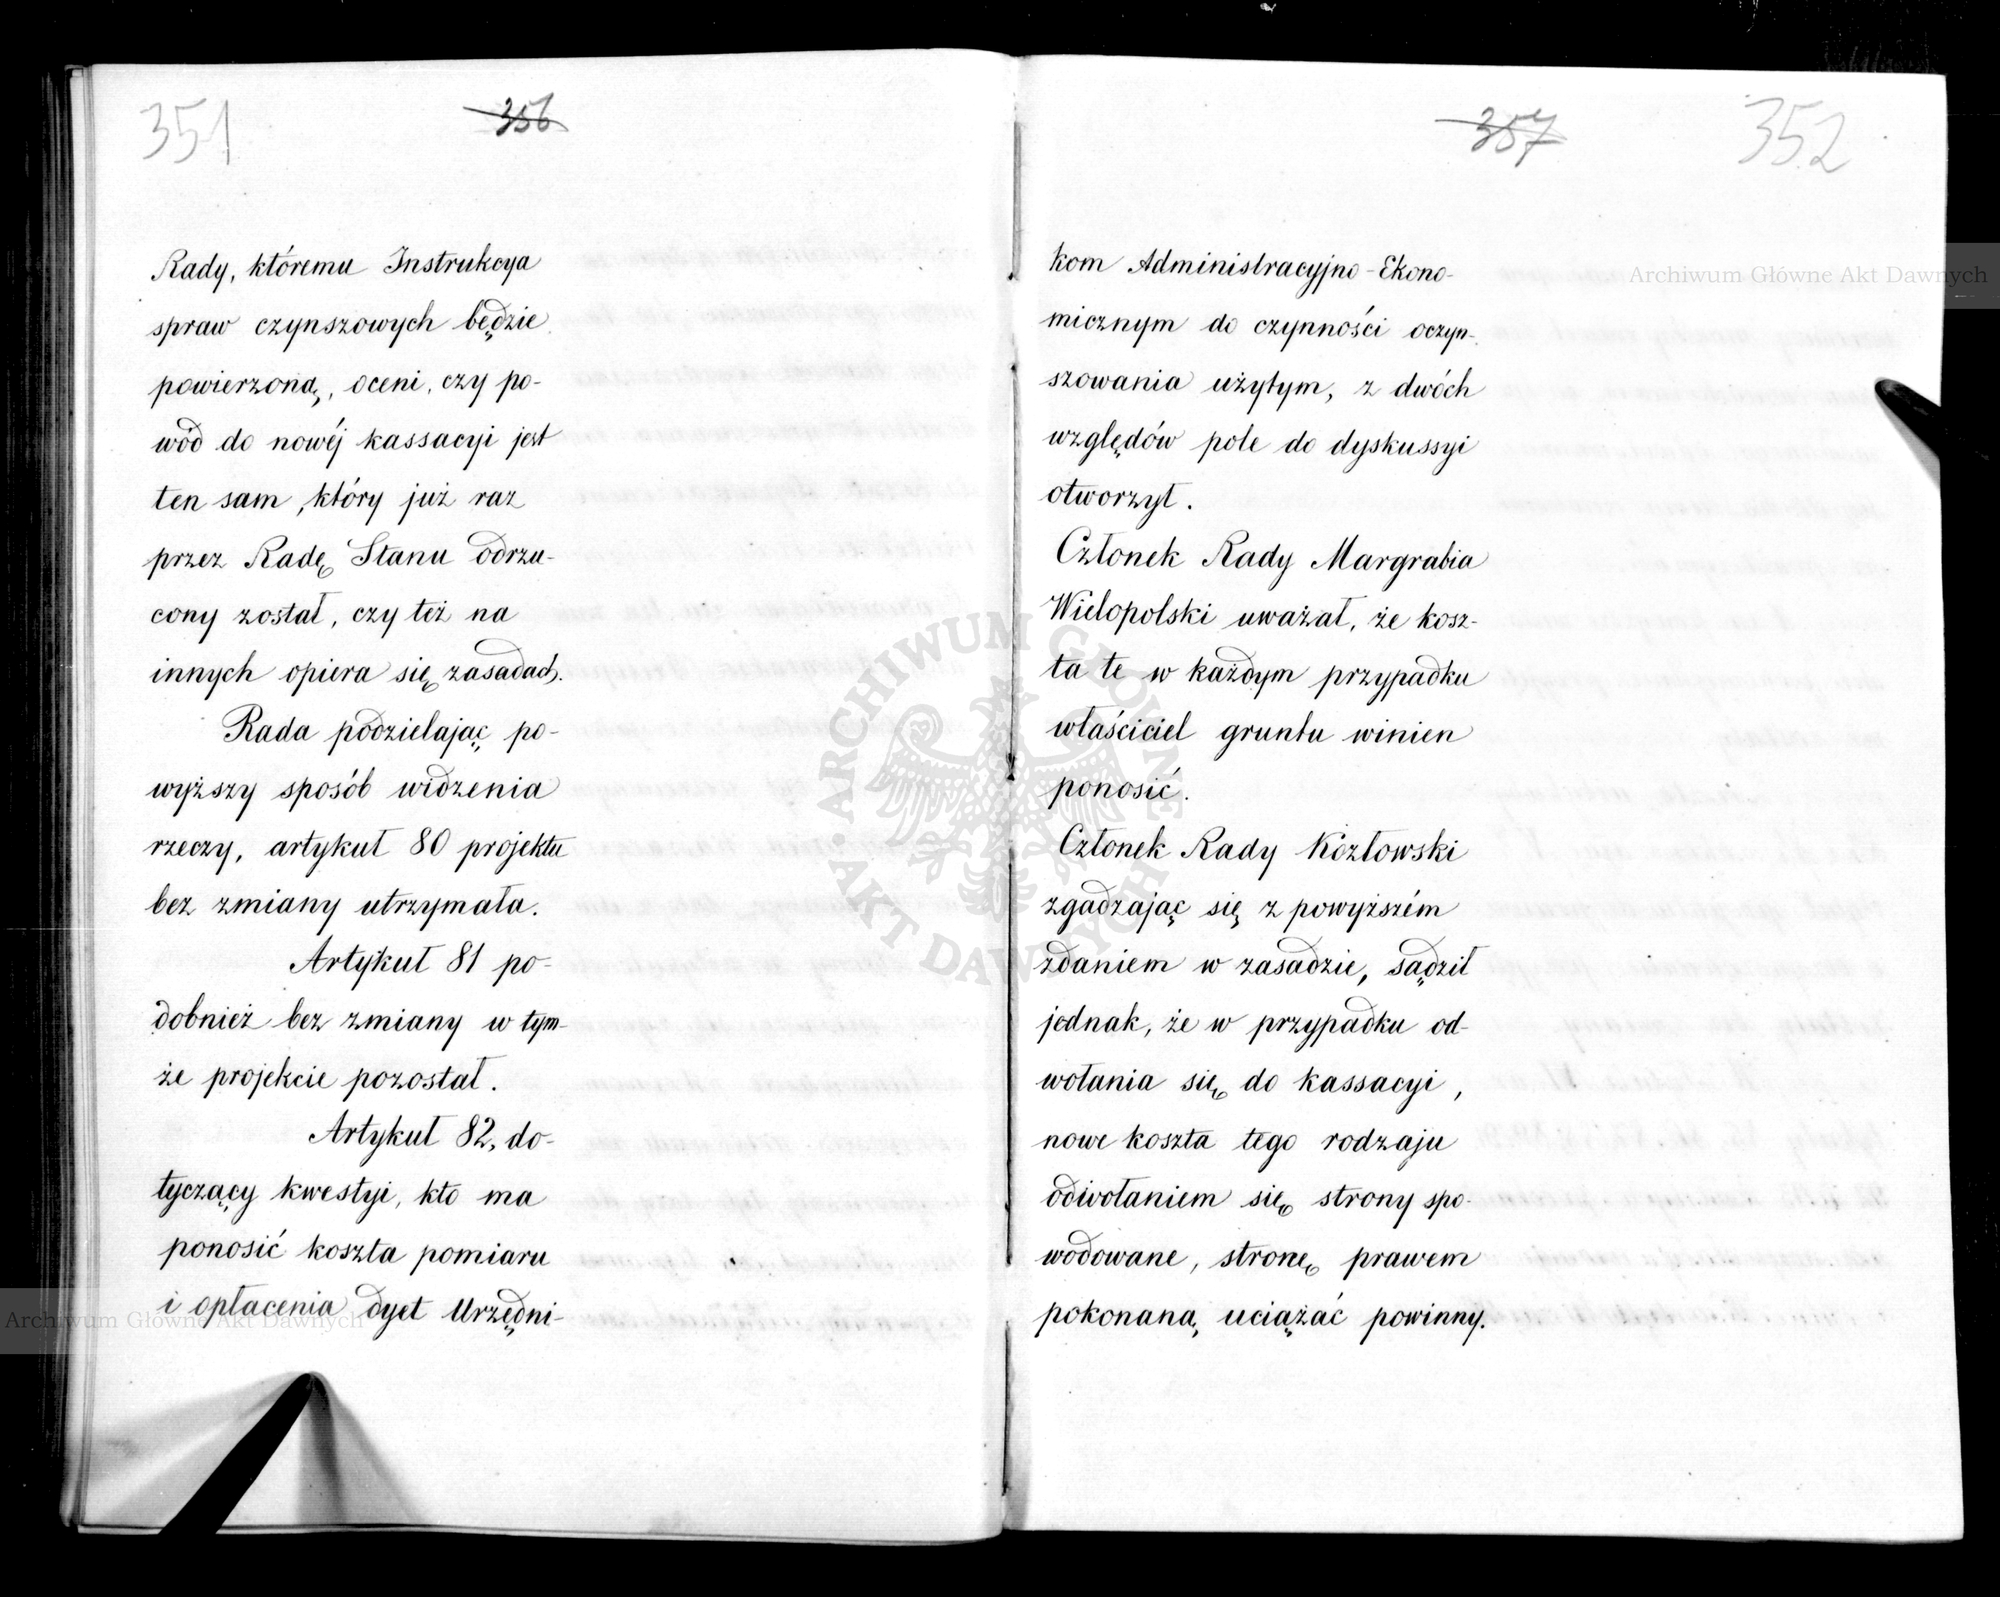 351
356
Rady, któremu Instrukcya
spraw czynszowych będzie
powierzoną, oceni, czy po-
wód do nowéj kassacyi jest
ten sam, który już raz
przez Radę Stanu odrzu-
cony został, czy też na
innych opiera się zasadach.
Rada podzielając po-
wyższy sposób widzenia
rzeczy, artykuł 80 projektu
bez zmiany utrzymała.
Artykuł 81 po-
dobnież bez zmiany w tym-
że projekcie pozostał.
Artykuł 82, do-
tyczący kwestyi, kto ma
ponosić koszta pomiaru
i opłacenia dyet Urzędni-
357
352
kom Administracyjno-Ekono-
micznym do czynności oczyn-
szowania użytym, z dwóch
względów pole do dyskussyi
otworzył.
Członek Rady Margrabia
Wielopolski uważał, że kosz-
ta te w każdym przypadku
właściciel gruntu winien
ponosić.
Członek Rady Kozłowski
zgadzając się z powyższém
zdaniem w zasadzie, sądził
jednak, że w przypadku od-
wołania się do kassacyi,
nowe koszta tego rodzaju
odwołaniem się strony spo-
wodowane, stronę prawem
pokonaną, uciążać powinny.
Archiwum Główne Akt Dawnych
Archiwum Główne Akt Dawnych
ARCHIWUM GŁÓWNE
AKT DAWNYCH